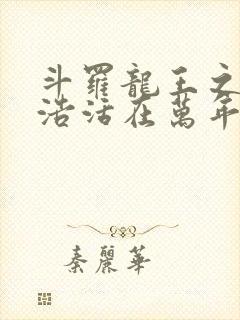 斗羅龍王之
浩活在萬年
秦麗華